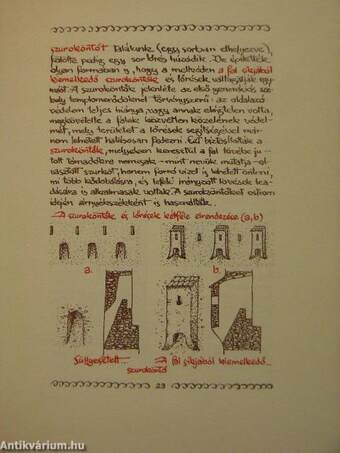 szuroköntőt találunk (egy sorban elhelyezve),
fölötte pedig egy sor lőrés húzódik. De építettek
olyan formában is, hogy a mellvéden a fal síkjából
kiemelkedő szuroköntők és lőrések váltogatják egy-
mást. A szuroköntők jelenléte az első generációs szá-
szok templomerődeinél törvényszerű: az oldalazó
védelem teljes hiánya, vagy annak elégtelen volta,
megkövetelte a falak közvetlen közelének védel-
mét, mely területet a lőrések segítségével már
nem lehetett hatásosan fedezni. Ezt biztosították a
szuroköntők, melyeken keresztül a fal tövébe ju-
tott támadókra nemcsak - mint nevük mutatja - ol-
vasztott szurkot, hanem forró vizet is lehetett önteni,
sőt több kődobálásra, és lefelé irányzott lövések lea-
dására is alkalmasak voltak. A szuroköntőket ostrom
idején árnyékszékként is használták.
A szuroköntők és lőrések kétféle elrendezése (a, b)
a. b.
Süllyesztett... A fal síkjából kiemelkedő...
szuroköntő
23
Antikvárium.hu